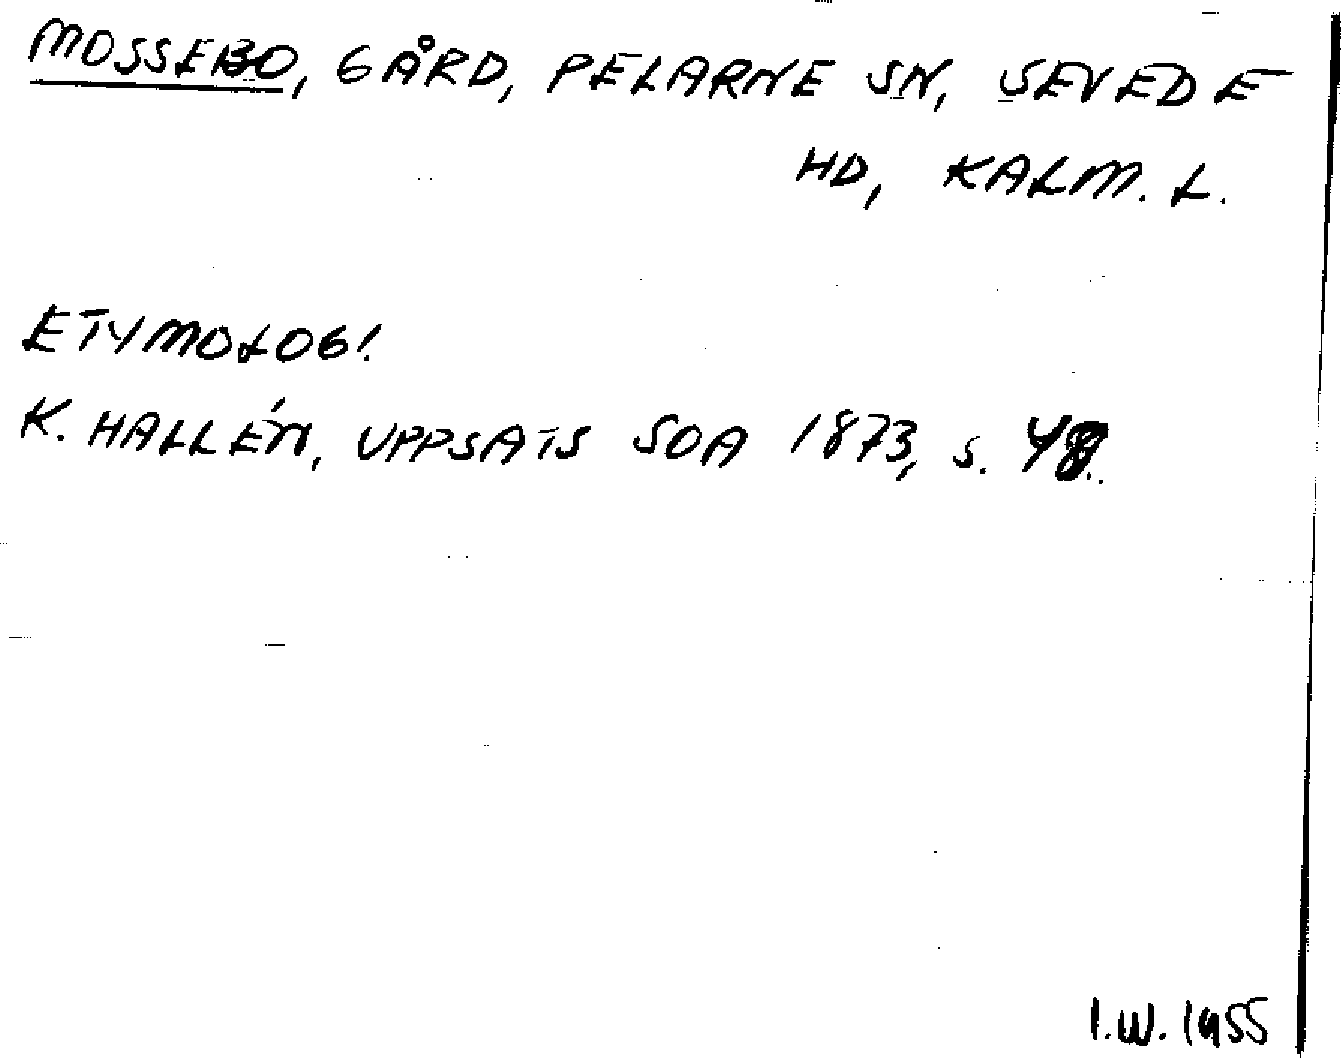 MOSSEBO, GÅRD, PELARNE SN, SEVEDE
HD, KALM. L.
ETYMOLOGI.
K. HALLÉN, UPPSATS SOA 1873, S. 48.
I.W. 1955